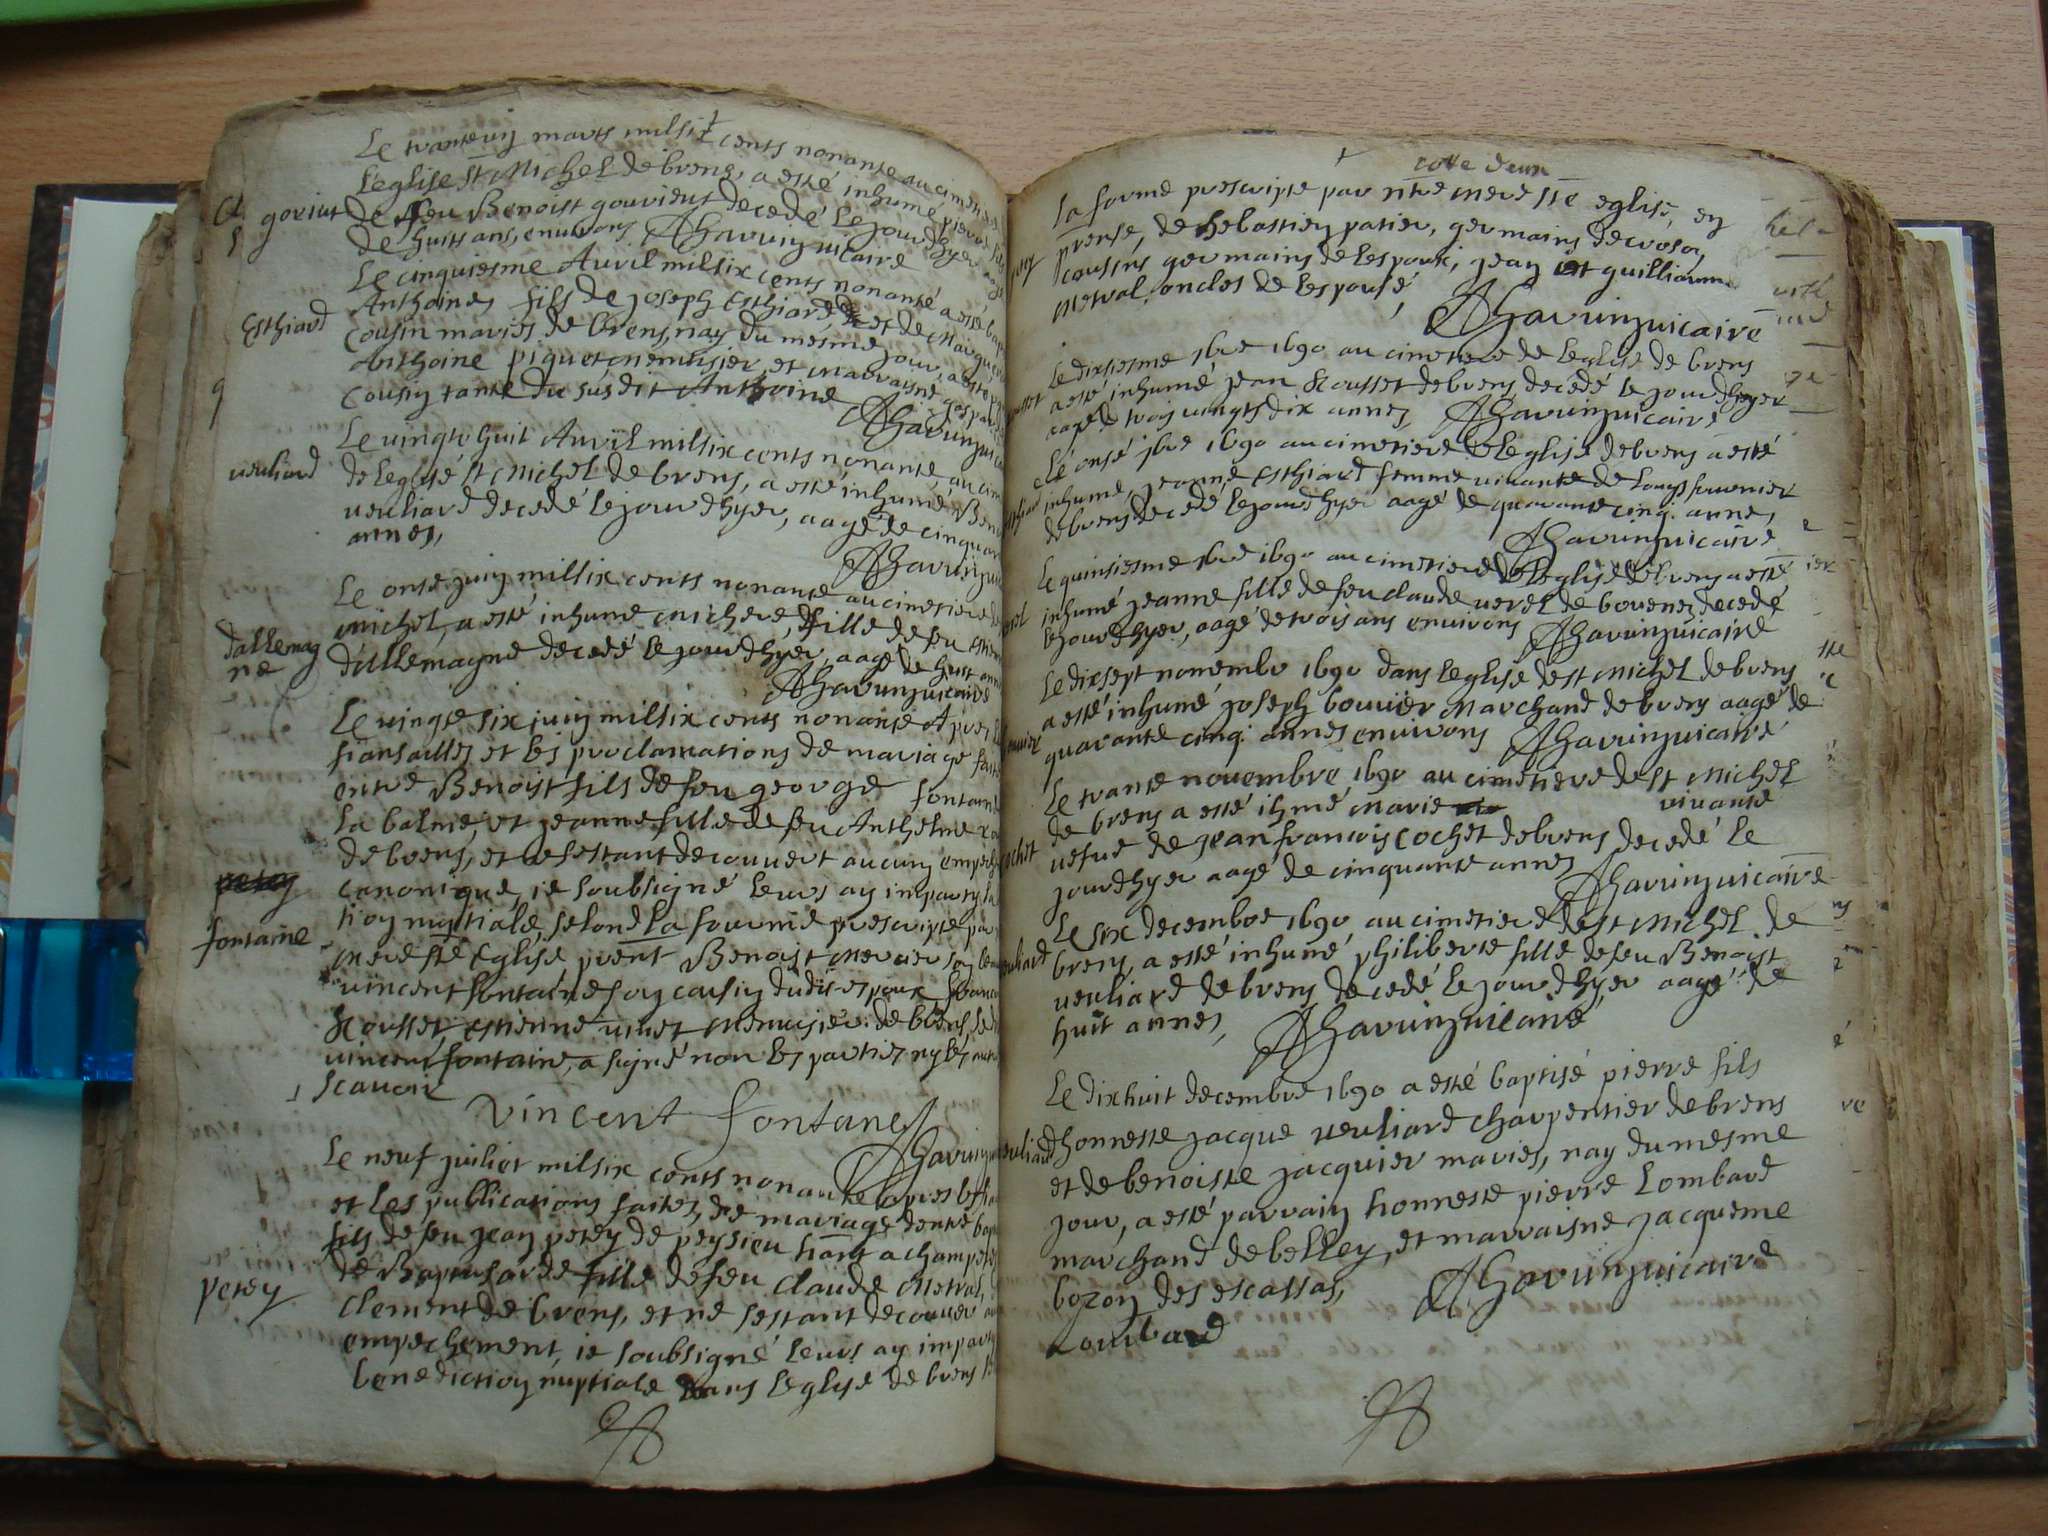 Le tranteuij mars milsix cents nonante au cimetiere
Leglise St Michel de brens, a esté inhumé pierre fils
goriut de feu Benoist gouvient decedé Le jour dhyer aagé
de huits ans, environs AGavuinzuicaire
Le cinquiesme Auvil milsix cents nonante a esté bap
Esthiard Anthoine fils de joseph Esthiard et de Margue
cousin mariés de brens, nay du mesme jour, a esté pa
Anthoine piquet menusier, et marraisne gaspar
cousin tante du susdit Anthoine
AGavuinzuica
Le vingte huit Auvil milsix cents nonante, au cim
veuliard de Leglisé St Michel de brens, a esté inhumé Ben
veuliard decedé le jour dhyer, aagé de cinquan
annes,
AGavuinzui
Le onse juin milsix cents nonante au cimetiere de
michel, a esté inhumé michere, fille de feu
dallemag
ne
dallemagne decedé le jour dhyer, aagé de huit ann
AGavuinzuicaire
Le vingte six juin milsix cents nonante Apres L
fiansailles et les proclamations de mariage faite
entre Benoist fils de feu george fontain
La balme, et jeanne fille de feu Anthelme
de brens, et ne sestant decouvert aucun empech
canonique, ie soubsigné Leurs ay imparty la
tion nuptiale, selond La fourme prescripte par
fontaine
mere ste Eglise prent Benoist Mercier son beau
vincent fontaine son cousin dudit espoux francoi
Rousset, estienne vinet menuisier de brens, le di
vincent fontaine, a signé non les parties ny les autr
scavoir
vincent fontanes
AGavuinzui
Le neuf juiliet milsix cents nonante Apres les fia
et les publications faites, de mariage dentre
fils de feu jean perey de peysieu hant a champ
perey
de Bapt fille de feu claude Metral
clement de brens, et ne sestant decouver au
empechement, ie soubsigné Leurs ay imparty
benediction nuptiale dans Leglise de brens
cotte deux
La forme prescripte par ntre mere ste eglise, en
prense, de sebastien patier, germains
cousins germains de lespoux, jean et guilliaume
metral, oncles de lespousé,
AGavuinzuicaire
Le dixiesme 1690 au cimetiere de Leglise de brens
a esté inhumé jean Rousset de brens decedé le jour dhyer
aagé de trois vingts dix annes, AGavuinzuicaire
Le onsé 1690 au cimetiere de Leglise de brens a esté
inhumé, jeanne Esthiard femme vivante de Louys fournier
de brens decedé le jour dhyer aagé de quarante cinq. anne,
AGavuinzuicaire
Le quinsiesme 1690 au cimetiere de Leglise de brens a esté
inhumé jeanne fille de feu claude veret de bovenes decedé
le jour dhyer, aagé de trois ans environs AGavuinzuicaire
Le dixsept novembr 1690 dans Leglise de st Michel de brens
a esté inhumé joseph bouvier Marchand de brens aagé de
quarante cinq. annes environs AGavuinzuicaire
Le trante novembre 1690 au cimetiere de st Michel
de brens a esté ihmé Marie vivante
cochet vefve de jean francois cochet de brens decedé le
jour dhyer aagé de cinquante annes
AGavuinzuicaire
Le six decembre 1690 au cimetiere de st Michel de
brens, a esté inhumé philiberte fille de feu Benoist
veuliard de brens decedé le jour dhyer aagé de
huit annes, AGavuinzuicaire
Le dixhuit decembre 1690 a esté baptisé pierre fils
honneste jacque veuliard charpentier de brens
et de benoiste jacquier maries, nay du mesme
jour, a esté parrain honneste pierre Lombard
marchand de belley, et marraisne jacqueme
bozon des escassas, AGavuinzuicaire
Lombard